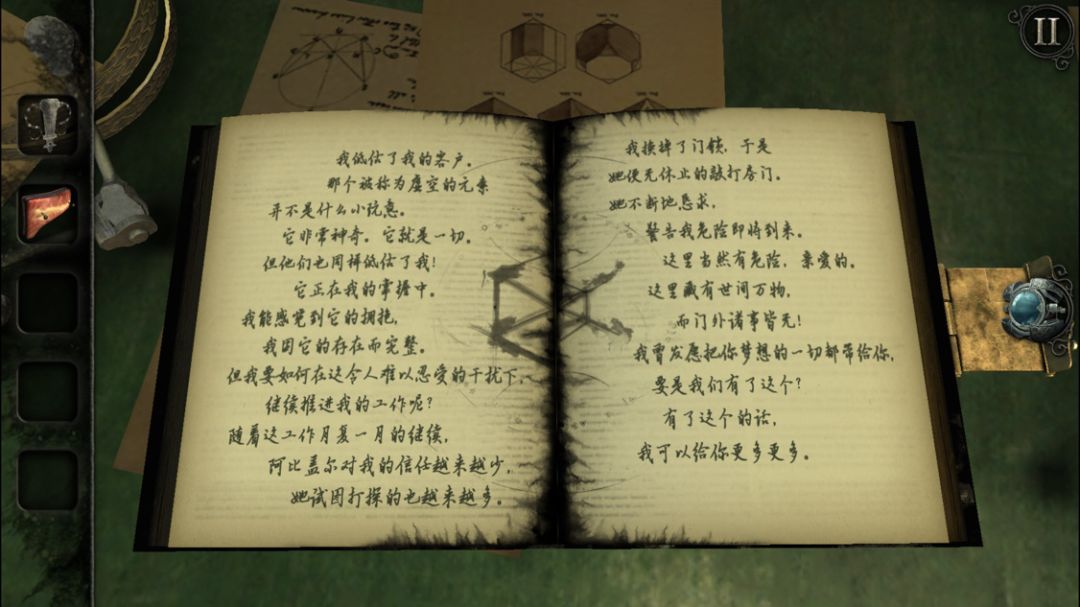 我低估了我的客户。
那个被称为虚空的元素
并不是什么小玩意。
它非常神奇。它就是一切。
但他们也同样低估了我！
它正在我的掌握中。
我能感觉到它的拥抱，
我因它的存在而完整。
但我要如何在这令人难以忍受的干扰下，
继续推进我的工作呢？
随着这工作月复一月的继续，
阿比盖尔对我的信任越来越少，
她试图打探的也越来越多。
我换掉了门锁，于是
她便无休止的敲打房门。
她不断地恳求，
警告我危险即将到来。
这里当然有危险，亲爱的。
这里藏有世间万物，
而门外诸事皆无！
我曾发愿把你梦想的一切都带给你，
要是我们有了这个？
有了这个的话，
我可以给你更多更多。